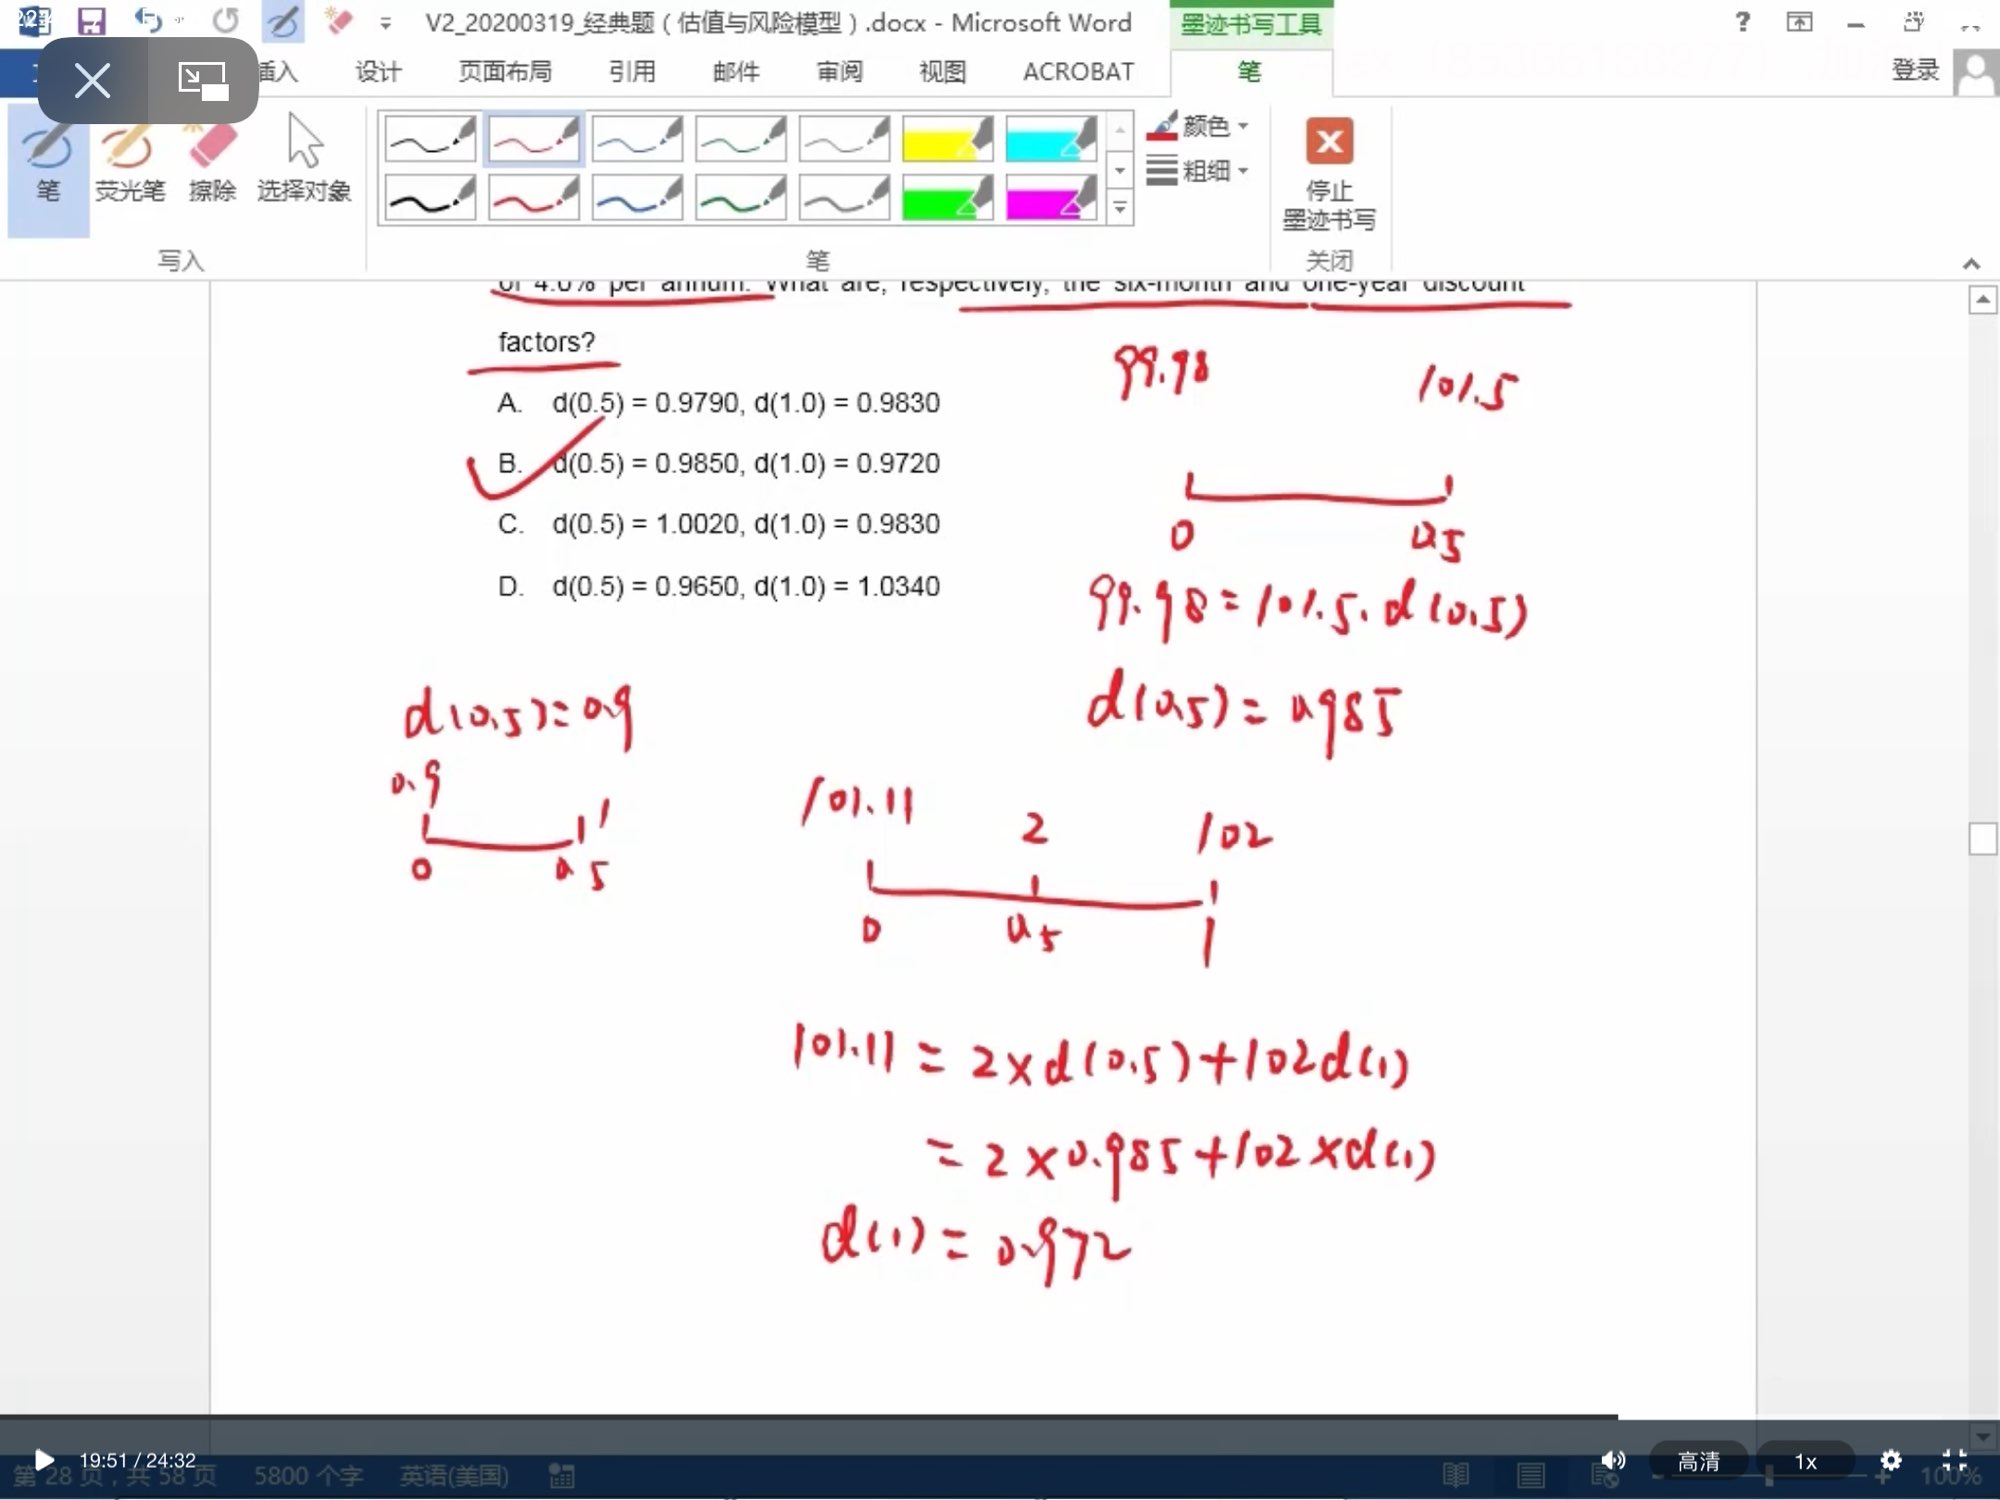 V2_20200319_经典题（估值与风险模型）.docx - Microsoft Word
墨迹书写工具
?
插入 设计 页面布局 引用 邮件 审阅 视图 ACROBAT 笔 登录
笔 荧光笔 擦除 选择对象
颜色
粗细
停止
墨迹书写
写入 笔 关闭
of 4.0% per annum. What are, respectively, the six-month and one-year discount
factors?
A. d(0.5) = 0.9790, d(1.0) = 0.9830
B. d(0.5) = 0.9850, d(1.0) = 0.9720
C. d(0.5) = 1.0020, d(1.0) = 0.9830
D. d(0.5) = 0.9650, d(1.0) = 1.0340
99.98 101.5
0 0.5
99.98 = 101.5. d(0.5)
d(0.5) = 0.985
d(0.5) = 0.9
0.9 1
0 0.5
101.11 2 102
0 0.5 1
101.11 = 2 × d(0.5) + 102d(1)
= 2 × 0.985 + 102 × d(1)
d(1) = 0.972
19:51 / 24:32
高清 1x
第 28 页，共 58 页 5800 个字 英语(美国) 100%